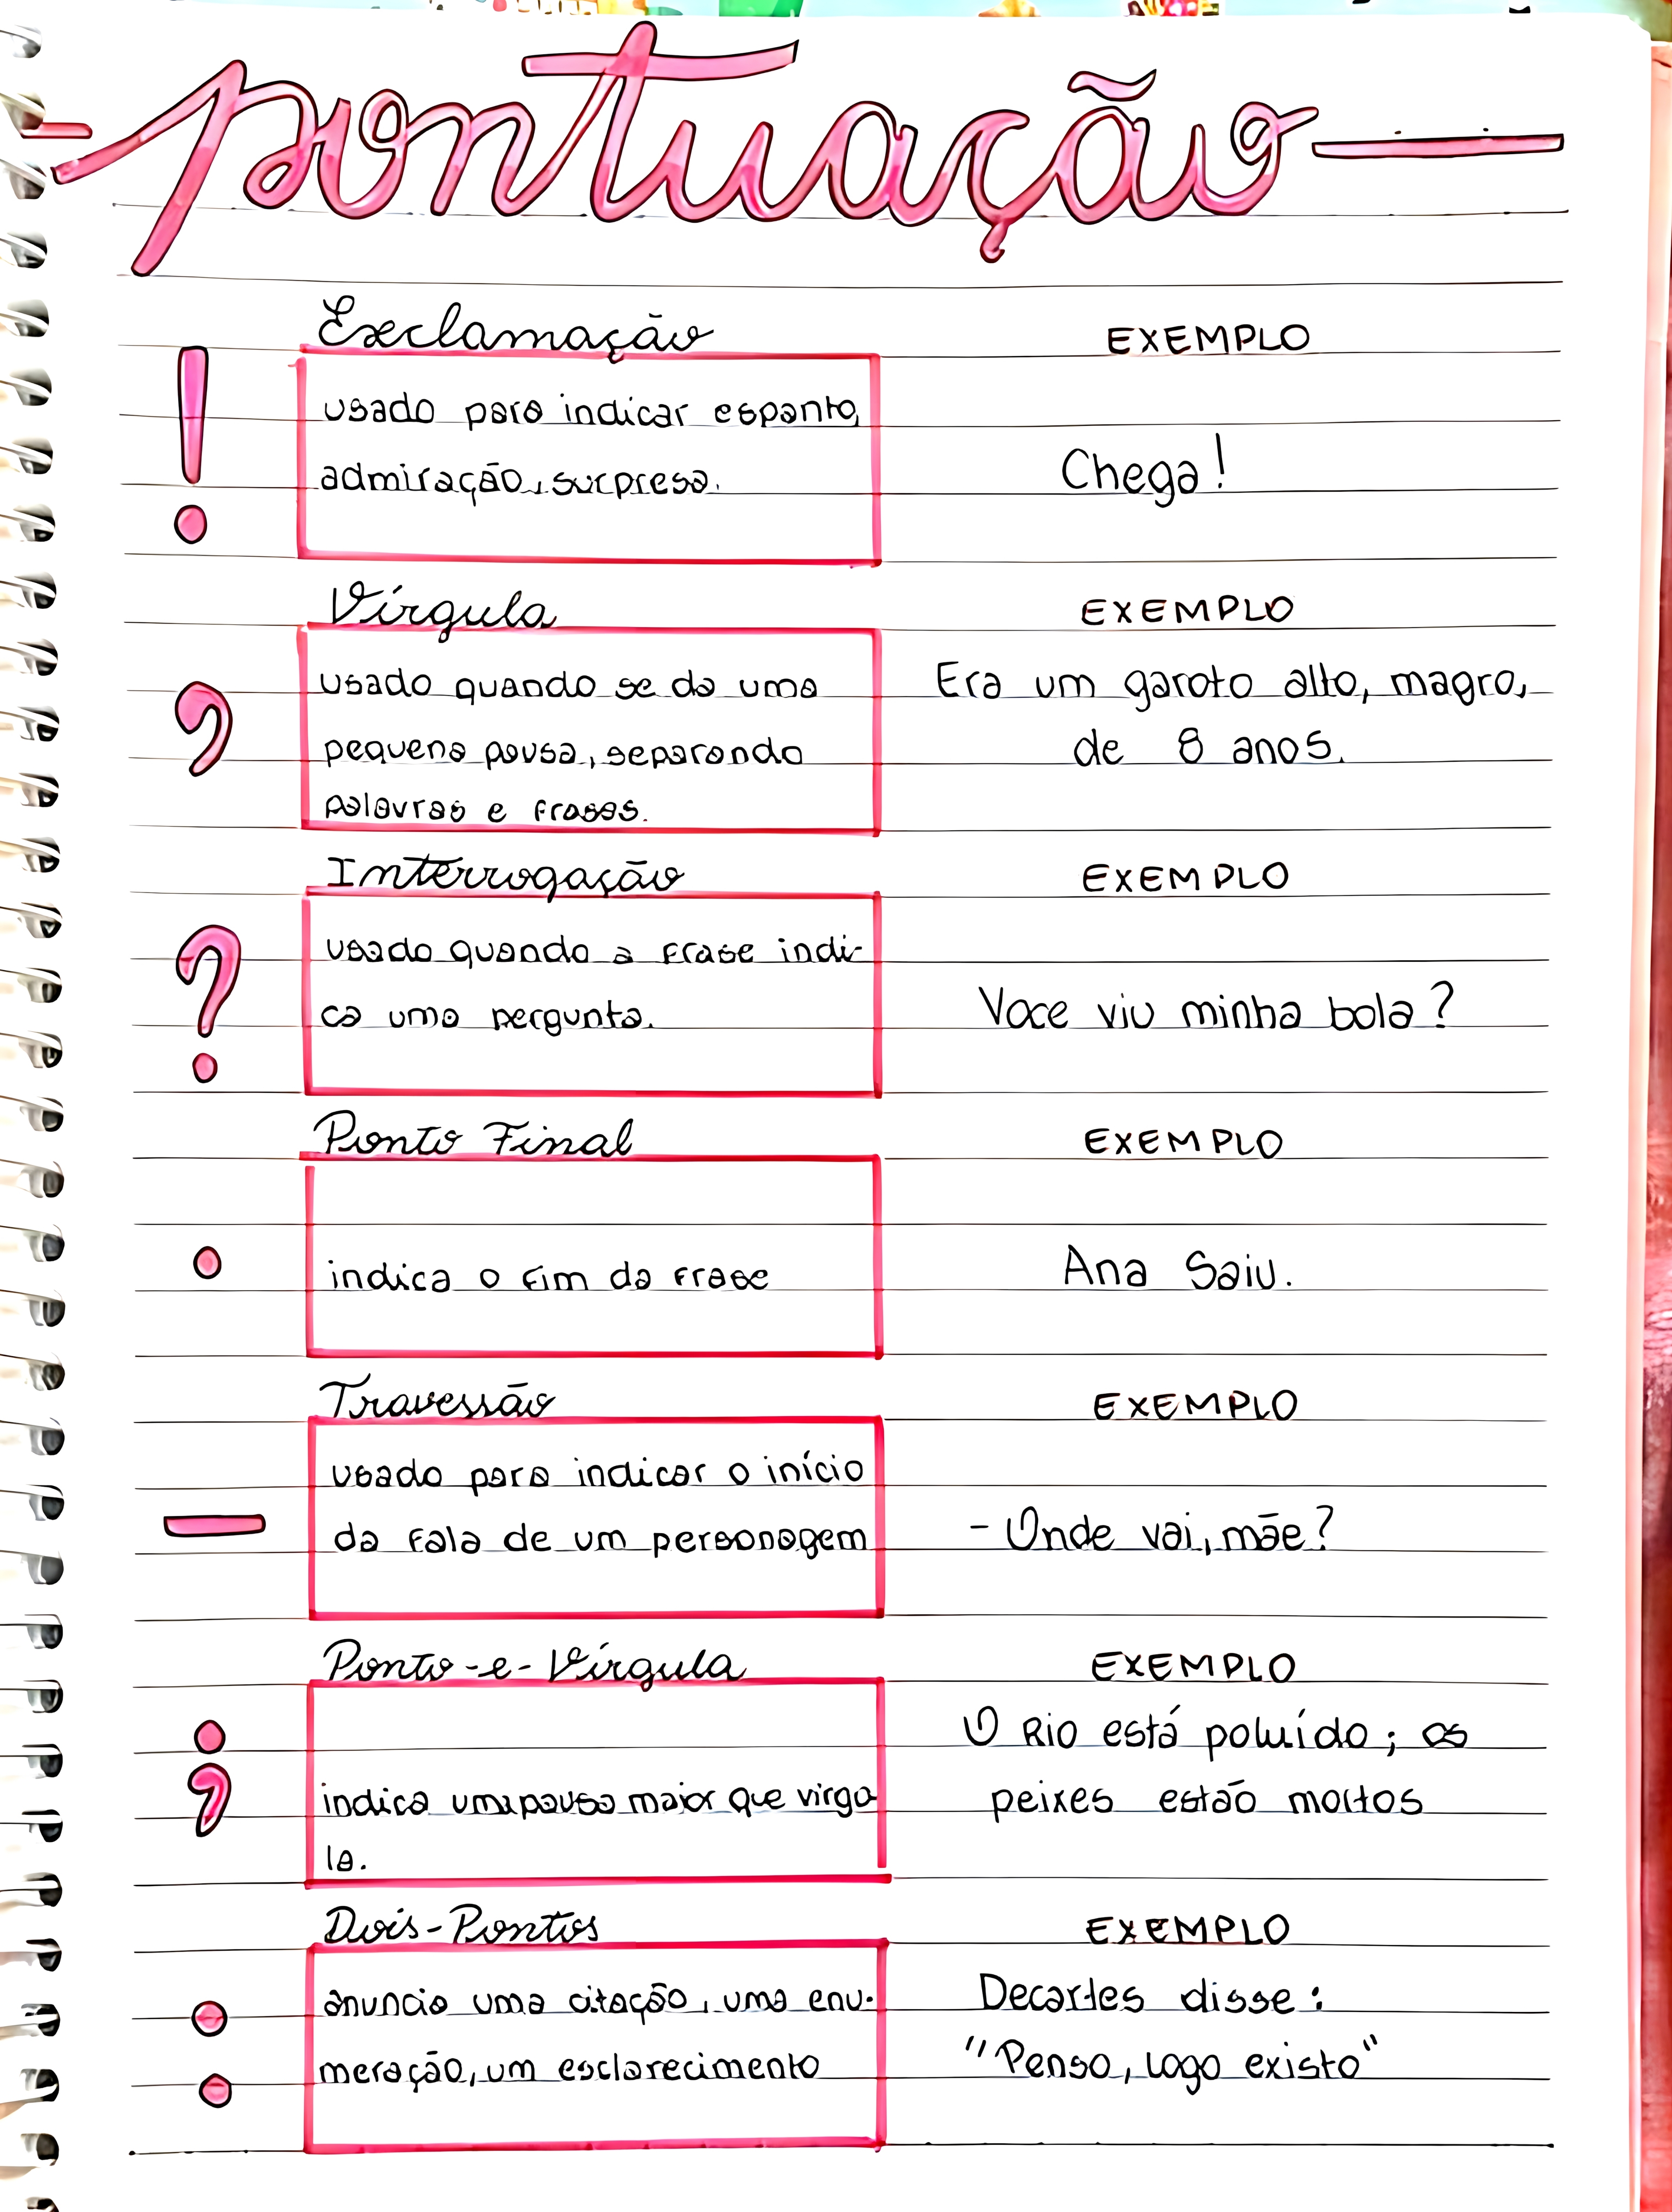 pontuação
Exclamação EXEMPLO
!
usado para indicar espanto,
admiração, surpresa.
Chega!
Vírgula EXEMPLO
,
usado quando se da uma
pequena pausa, separando
palavras e frases.
Era um garoto alto, magro,
de 8 anos.
Interrogação EXEMPLO
?
usado quando a frase indi-
ca uma pergunta.
Voce viu minha bola?
Ponto Final EXEMPLO
.
indica o fim da frase
Ana Saiu.
Travessão EXEMPLO
—
usado para indicar o início
da fala de um personagem
- Onde vai, mãe?
Ponto-e-Vírgula EXEMPLO
;
indica uma pausa maior que virgu
la.
O Rio está poluído; os
peixes estão mortos
Dois-Pontos EXEMPLO
:
anuncia uma citação, uma enu-
meração, um esclarecimento
Decartes disse:
"Penso, logo existo"